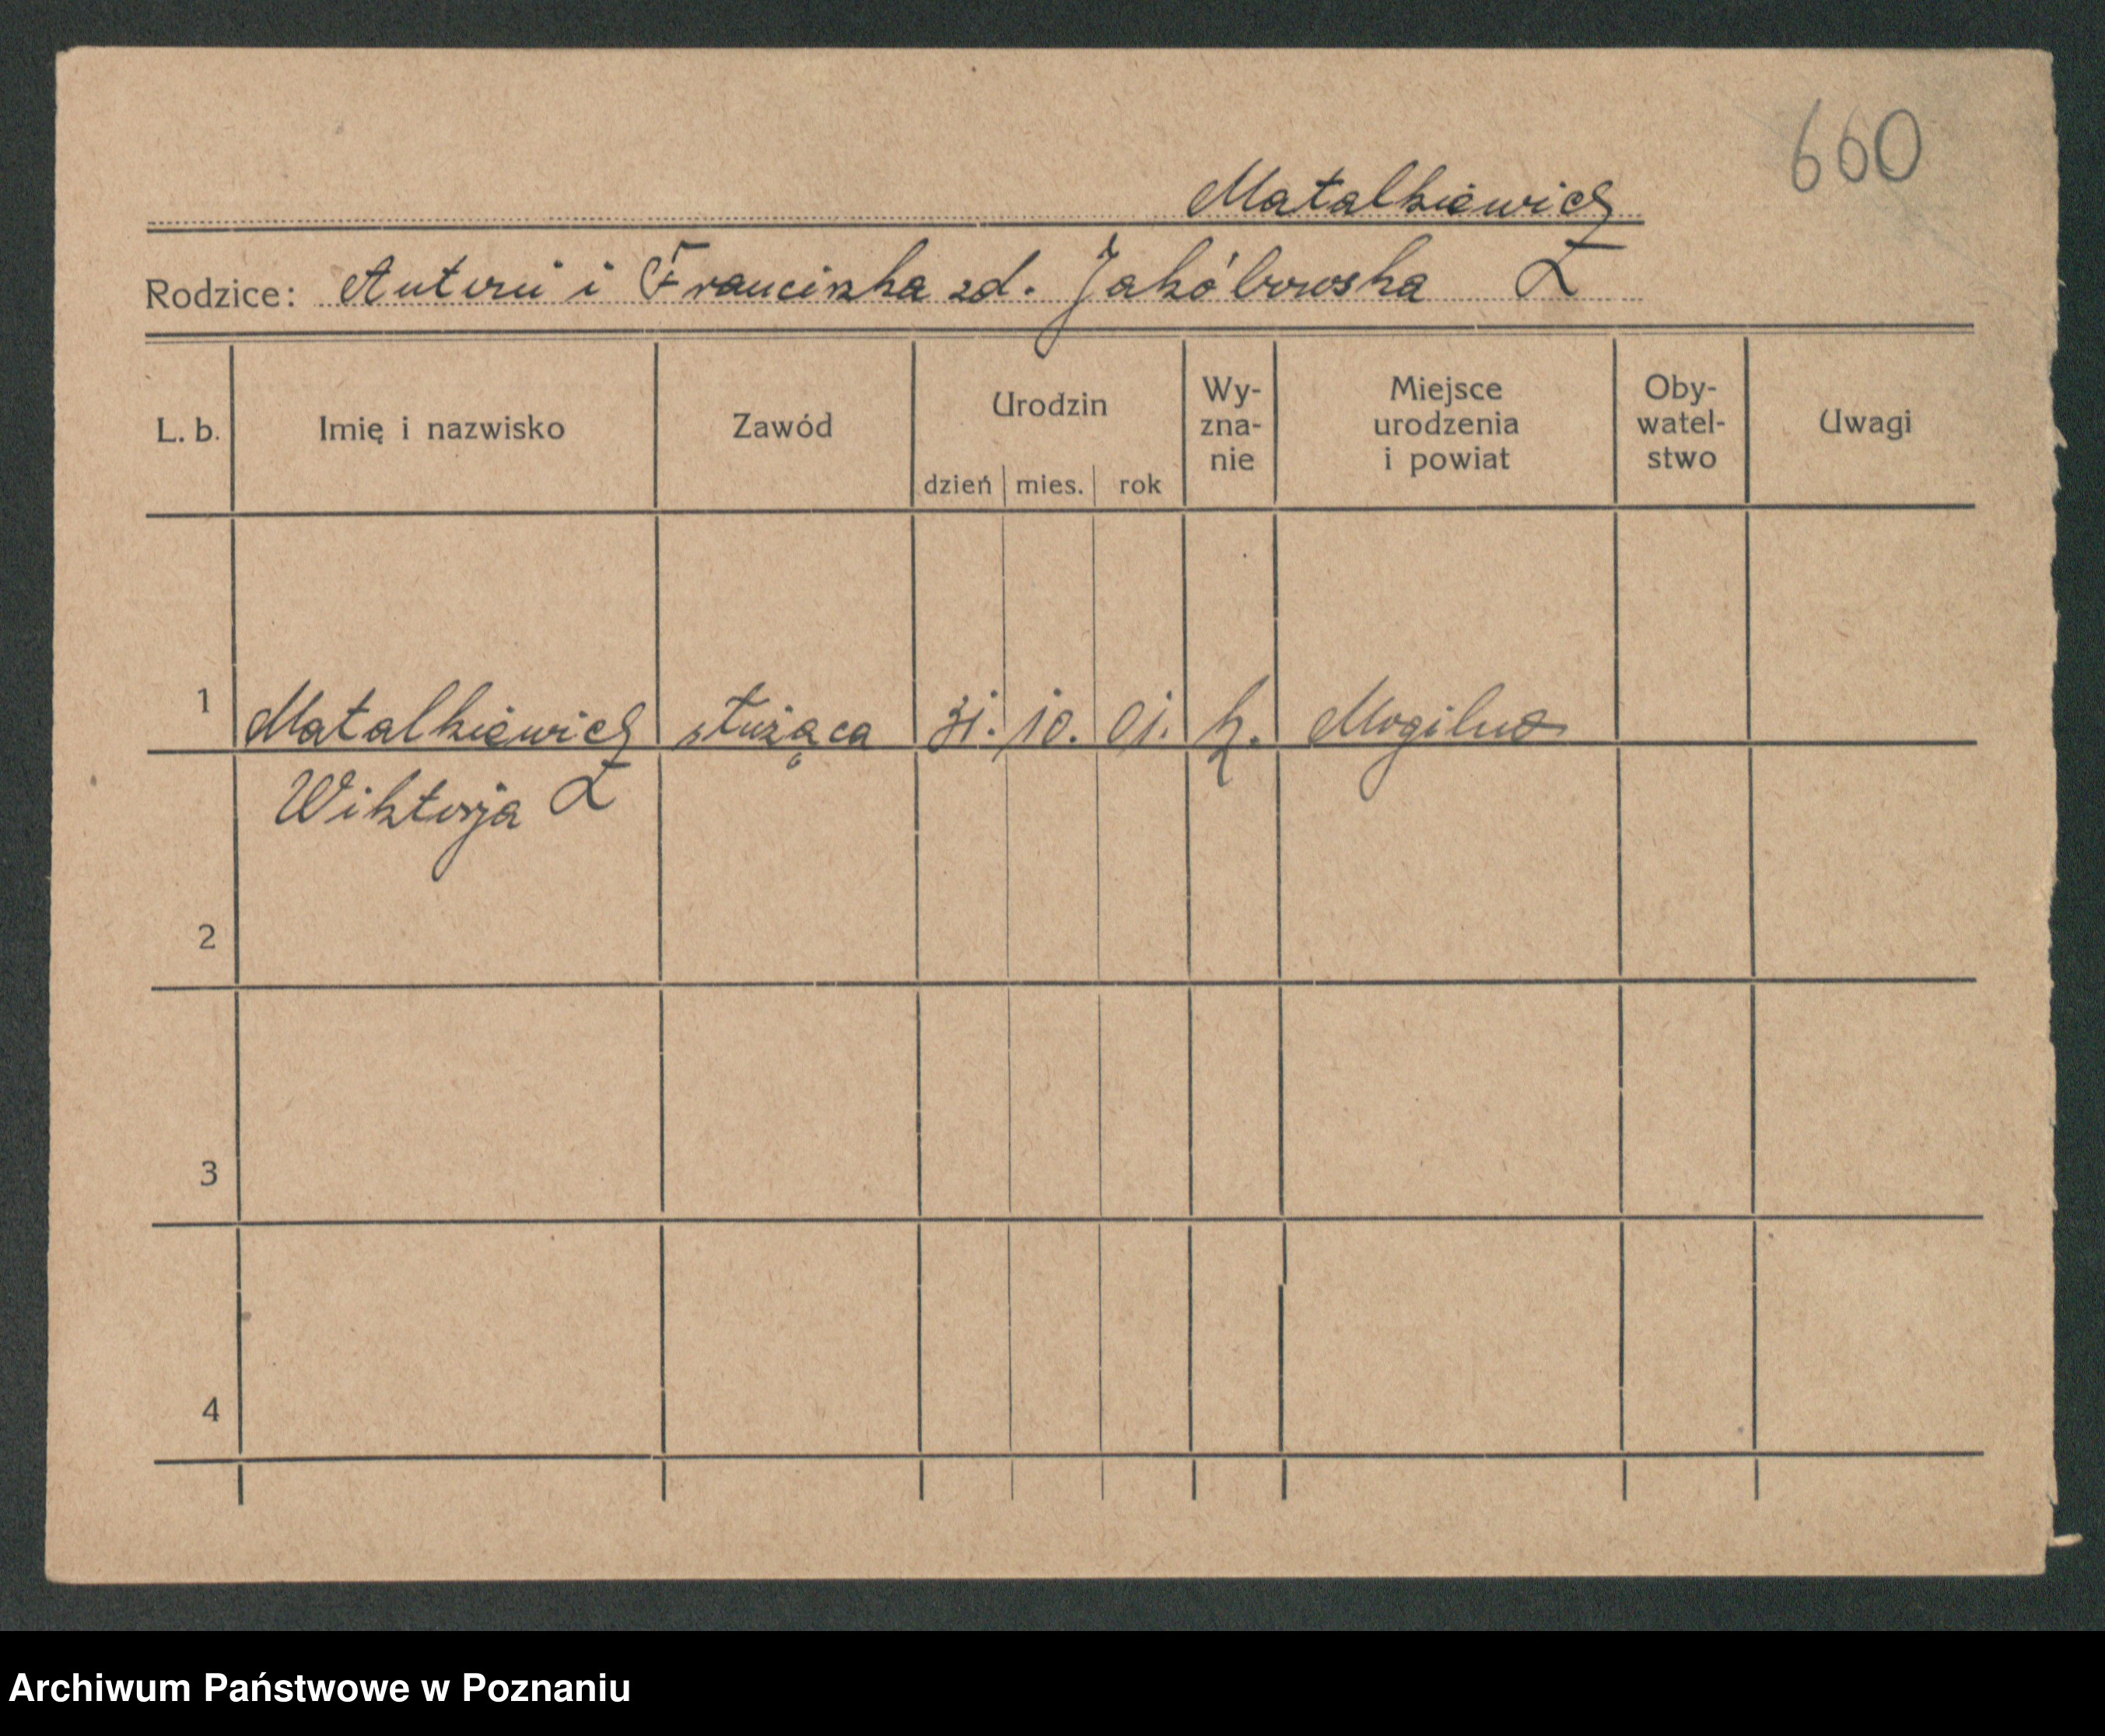 660
Matalkiewicz
Rodzice: Antoni i Franciszka zd. Jakóbowska Z
L. b. Imię i nazwisko Zawód Urodzin dzień mies. rok Wy- zna- nie Miejsce urodzenia i powiat Oby- watel- stwo Uwagi
1 Matalkiewicz służąca 31. 10. 01. k. Mogilno
Wiktorja Z
2
3
4
Archiwum Państwowe w Poznaniu